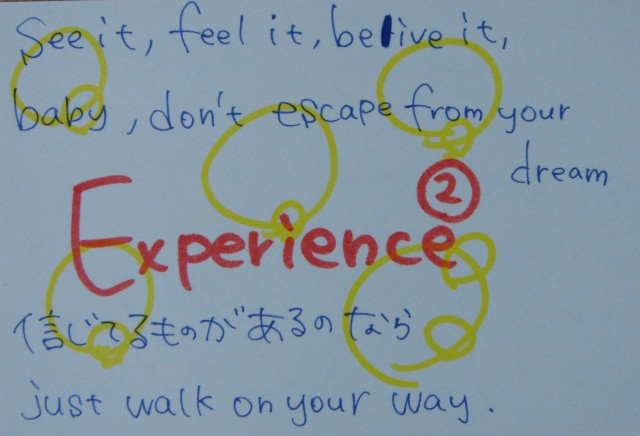 See it, feel it, belive it,
baby, don't escape from your
dream
Experience ②
信じてるものがあるのなら
just walk on your way.